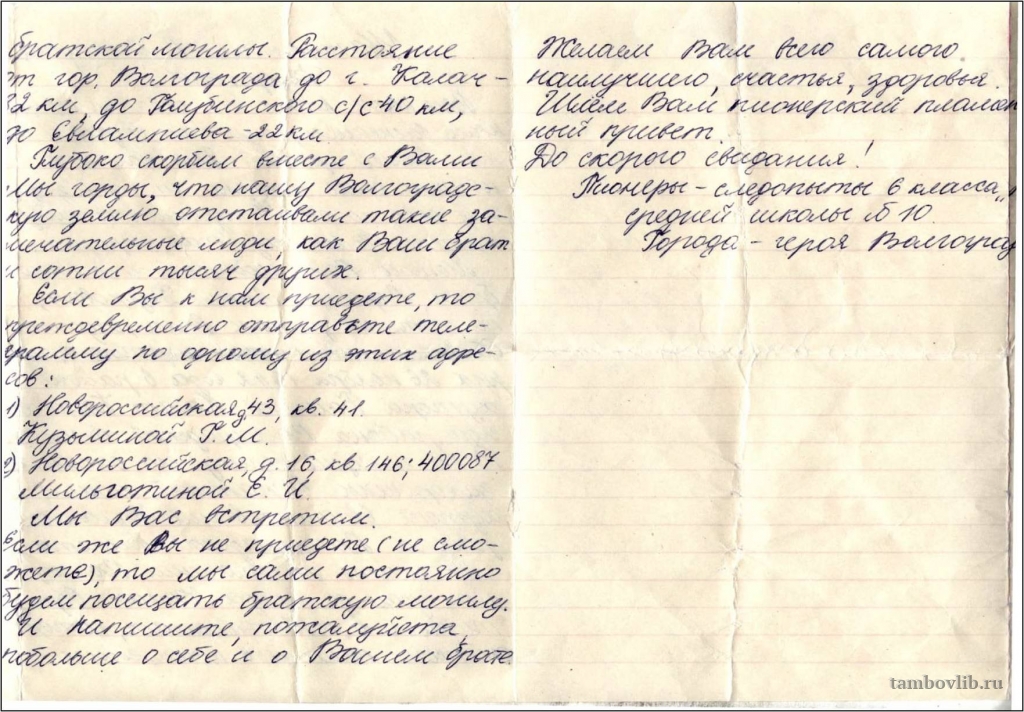 братской могилы. Расстояние
от гор. Волгограда до г. Калач -
72 км, до Голубинского с/с 40 км,
до Евлампиева - 22 км.
Глубоко скорбим вместе с Вами
Мы горды, что нашу Волгоградс-
кую землю отстаивали такие за-
мечательные люди, как Ваш брат
и сотни тысяч других.
Если Вы к нам приедете, то
преждевременно отправьте теле-
грамму по одному из этих адре-
сов:
1) Новороссийская д. 43, кв. 41.
Кузьминой Г. М.
2) Новороссийская, д. 16, кв. 146; 400087.
Мильготиной Е. И.
Мы Вас встретим.
Если же Вы не приедете (не смо-
жете), то мы сами постоянно
будем посещать братскую могилу.
И напишите, пожалуйста,
побольше о себе и о Вашем брате.
Желаем Вам всего самого
наилучшего, счастья, здоровья.
Шлём Вам пионерский пламен
ный привет.
До скорого свидания!
Пионеры - следопыты 6 класса „
средней школы № 10.
Города - героя Волгогра
tambovlib.ru